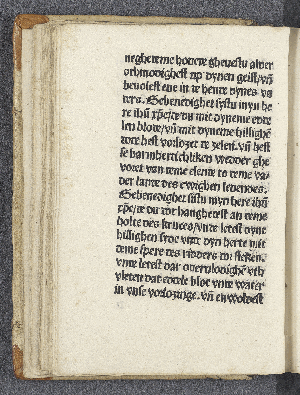 neghereme hovere gheuestu alder
othmodighest up dynen geist/ vñ
beuolest ene in de hende dynes va
ders. Gebenediget systu myn he
re ihũ xp̃e/ de du mit dyneme edde
len blode/ vñ mit dyneme hillighē
dode hest vorloset de zelen/ vñ hest
se barmhertichliken wedder ghe
voret van deme elende to deme va
der lande des ewighen leuendes.
Gebenediget sistu myn here ihũ
xp̃e/ de du dor hanghedest an deme
holte des cruces/ vnde letest dyne
hillighen side vnde dyn herte mit
deme spere des ridders dorsteken
vnde letest dar ouervlodighē vth
vleten dat eddele blod vnde water
in vnse vorlozinge. vñ en woldest